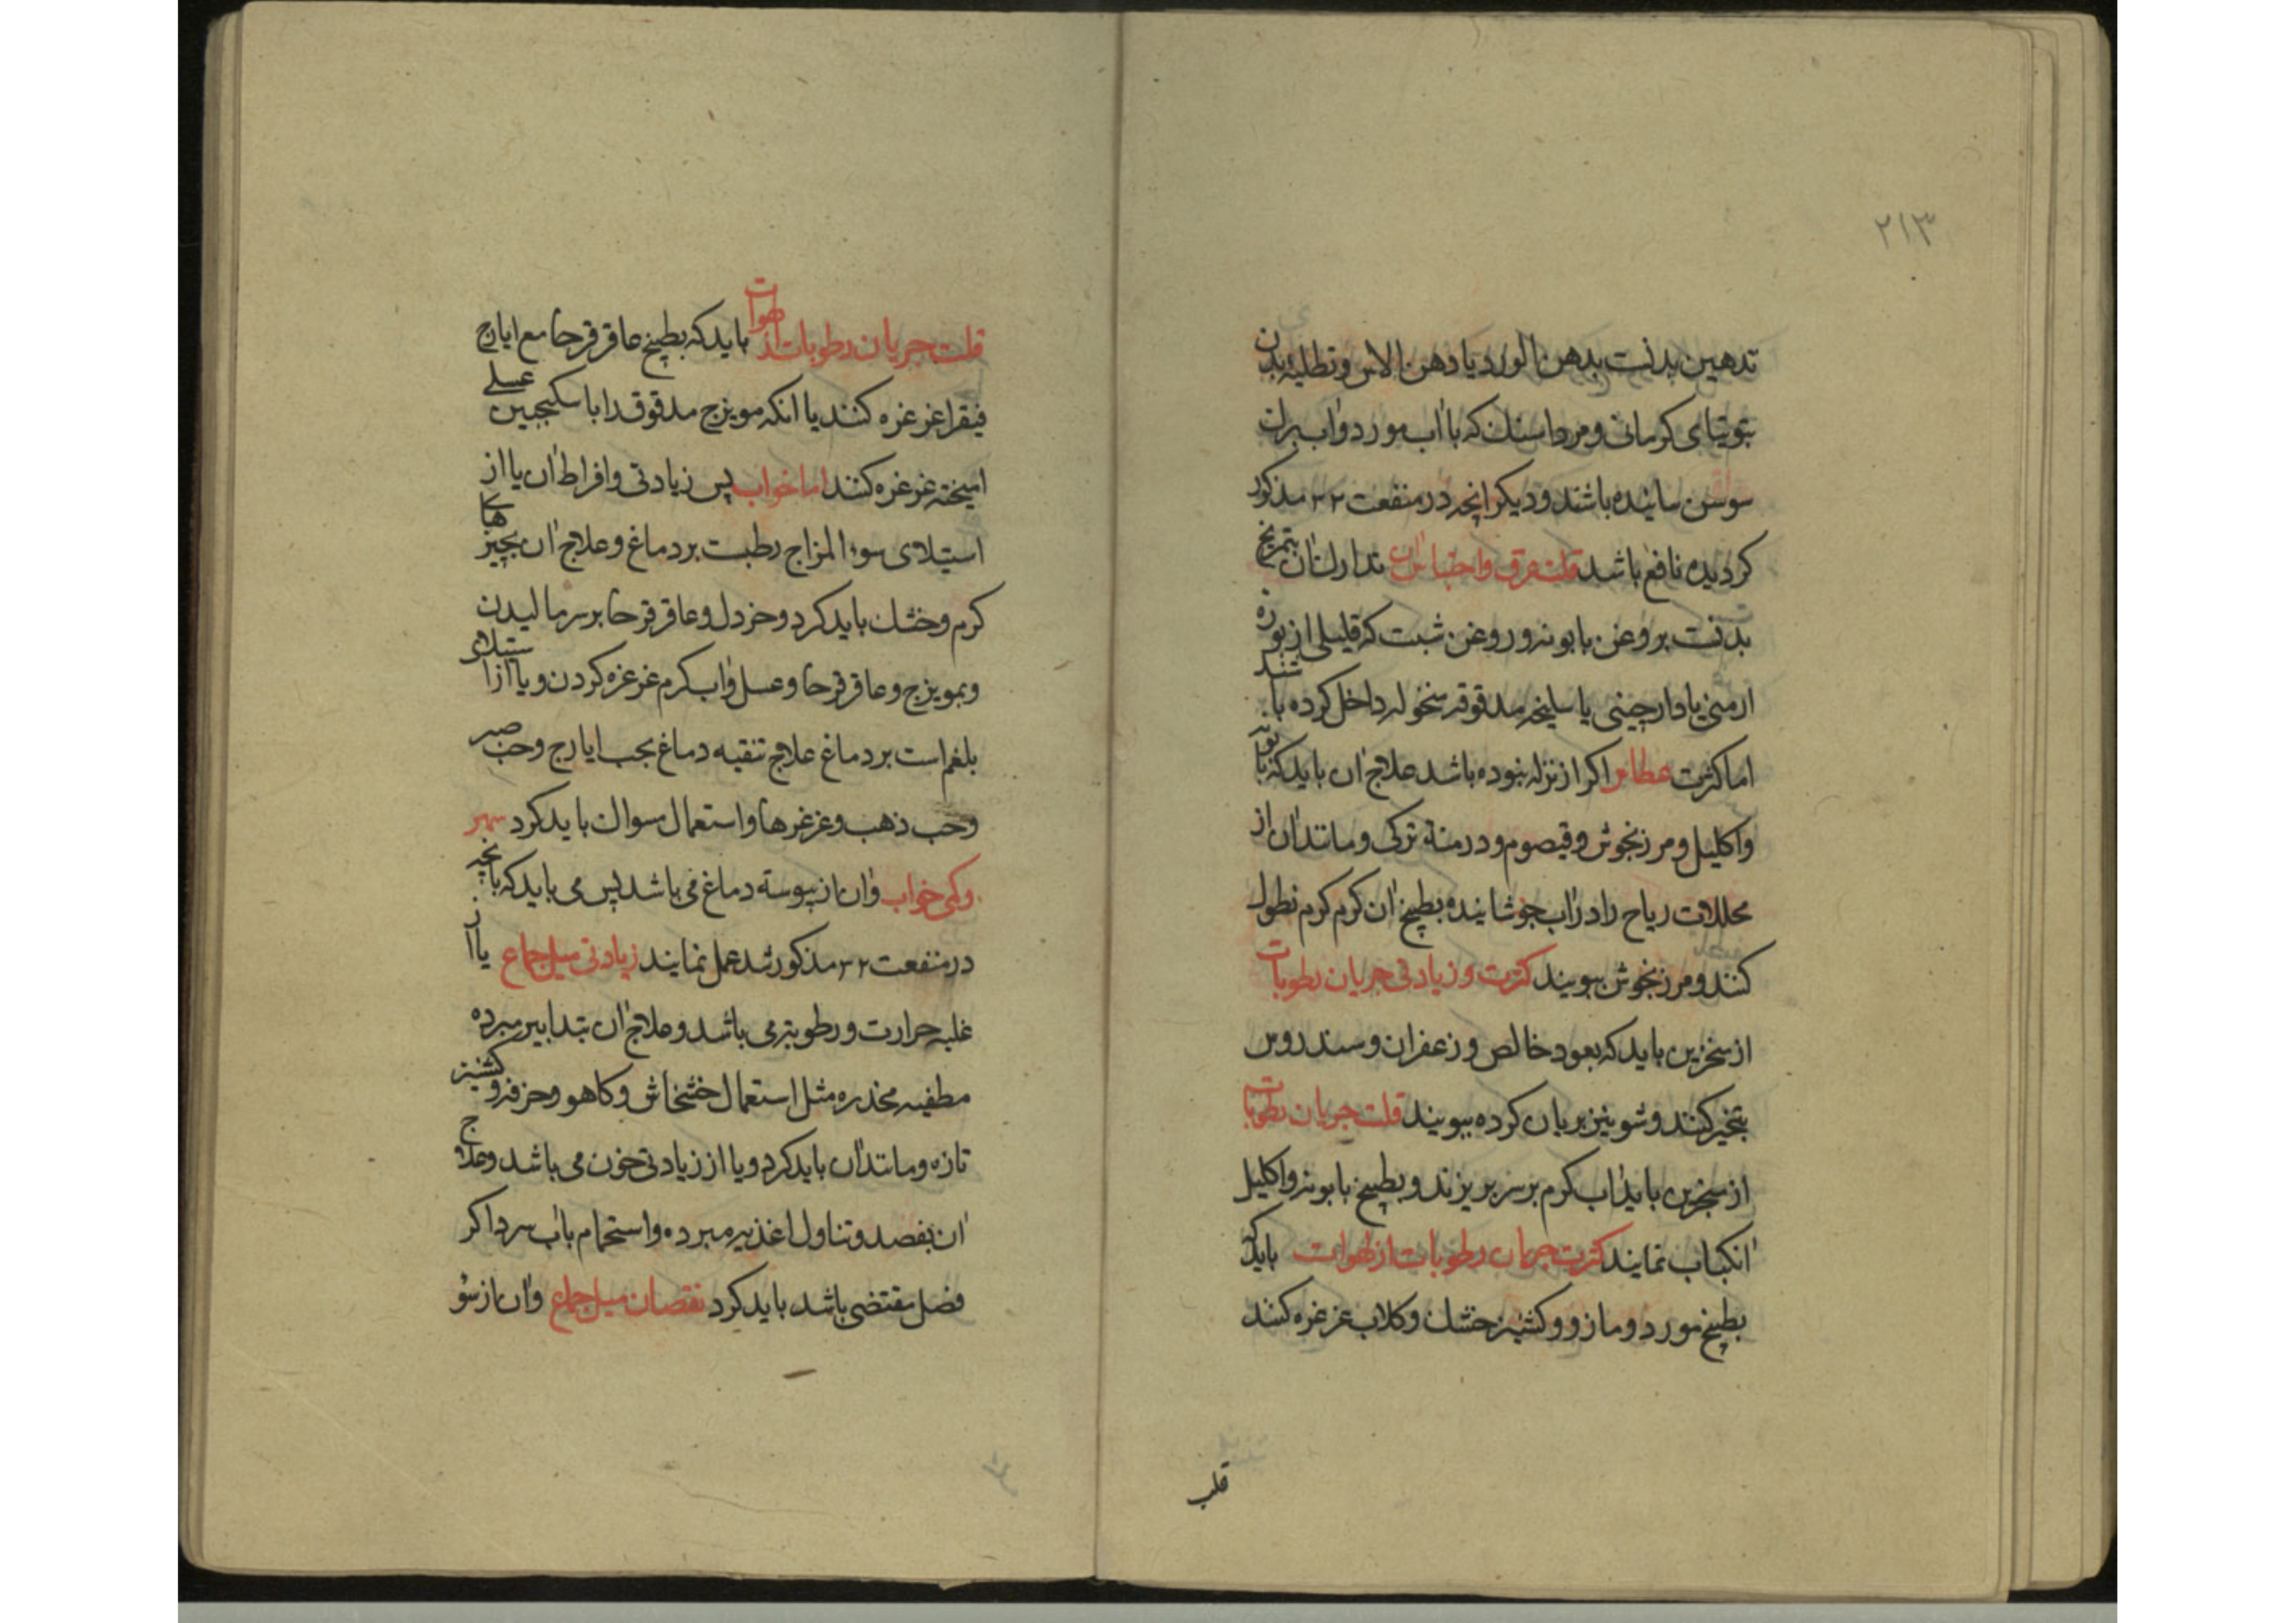 ٢١٣
تدهین بدنست بدهن الورد یا دهن الاس وتطلیه بدن
بتوتیای کرمانی ومرداسنک که باآب مورد وآب برک
سوسن سائیده باشند ودیکر انچه در منفعت ٣٢ مذکور
کردیده نافع باشد قلت عرق واحتباس آن تدارک آن بتمریخ
بدنست بروغن بابونه وروغن شبت که قلیلی از بوره
ارمنی یا دارچینی یا سلیخه مدقوقه منخوله داخل کرده باشند
اما کثرت عطاس اکر از نزله نبوده باشد علاج آن باید که بابونه
واکلیل ومرزنجوش وقیصوم ودرمنه ترکی ومانند آن از
محللات ریاح را در آب جوشانیده بطبیخ آن کرم کرم نطول
کنند ومرزنجوش ببویند کثرت وزیادتی جریان رطوبات
از منخرین باید که بعود خالص وزعفران وسندروس
بتخیر کنند وشونیز بریان کرده ببویند قلت جریان رطوبات
از منخرین باید آب کرم بر سر بریزند وبطبیخ بابونه واکلیل
انکباب نمایند کثرت جریان رطوبات از لهوات باید که
بطبیخ مورد ومازو وکشنیز خشک وکلاب غرغره کنند
قلت
قلت جریان رطوبات از لهوات باید که بطبیخ عاقرقرحا مع ایارج
فیقرا غرغره کنند یا انکه مویزج مدقوق را با سکنجبین عسلی
امیخته غرغره کنند اما خواب پس زیادتی وافراط آن یا از
استیلای سوء المزاج رطبست بر دماغ وعلاج آن بچیزهای
کرم وخشک باید کرد وخردل وعاقرقرحا بر سر مالیدن
وبمویزج وعاقرقرحا وعسل وآب کرم غرغره کردن ویا از استیلای
بلغم است بر دماغ علاج تنقیه دماغ بحب ایارج وحب صبر
وحب ذهب وغرغرها واستعمال سواک باید کرد سهر
وکمی خواب وآن از یبوسته دماغ می باشد پس می باید که بانچه
در منفعت ٣٢ مذکور شد عمل نمایند زیادتی میل جماع یا از
غلبه حرارت ورطوبته می باشد وعلاج آن بتدابیر مبرده
مطفیه مخدره مثل استعمال خشخاش وکاهو وخرفه وکشنیز
تازه ومانند آن باید کرد ویا از زیادتی خون می باشد وعلاج
آن بفصد وتناول اغذیه مبرده واستحمام بآب سرد اکر
فصل مقتضی باشد باید کرد نقصان میل جماع وآن از سوء